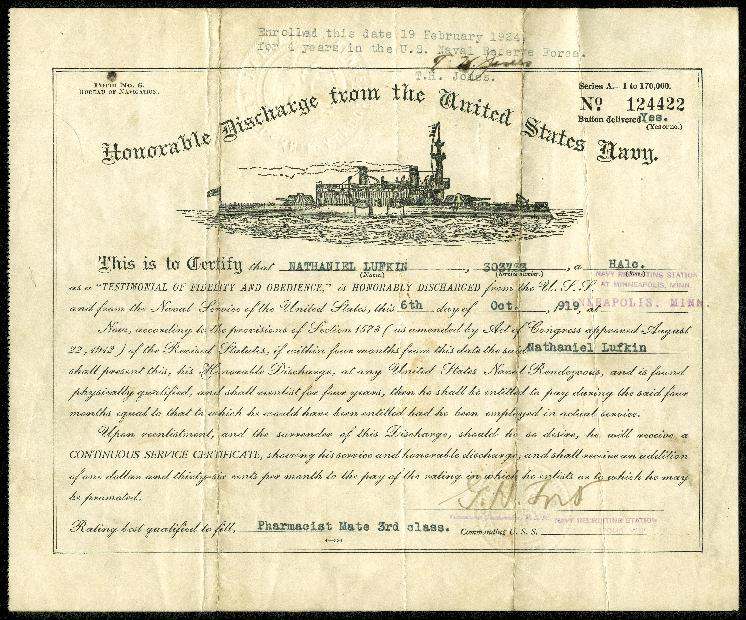 Enrolled this date 19 February 1924,
for 4 years in the U.S. Naval Reserve Force.
T.H. Jones.
Form No. 6.
Bureau of Navigation.
Series A.—1 to 170,000.
No 124422
Button delivered Yes.
(Yes or no.)
Honorable Discharge from the United States Navy.
This is to Certify that NATHANIEL LUFKIN, , a HA1c.
(Name.) (Service number.) (Rate.)
NAVY RECRUITING STATION
AT MINNEAPOLIS, MINN
as a "TESTIMONIAL OF FIDELITY AND OBEDIENCE," is HONORABLY DISCHARGED from the U.S.S.
and from the Naval Service of the United States, this 6th day of Oct. , 1919, at MINNEAPOLIS, MINN
Now, according to the provisions of Section 1573 (as amended by Act of Congress approved August
22, 1912) of the Revised Statutes, if within four months from this date the said Nathaniel Lufkin
shall present this, his Honorable Discharge, at any United States Naval Rendezvous, and is found
physically qualified, and shall reenlist for four years, then he shall be entitled to pay during the said four
months equal to that to which he would have been entitled had he been employed in actual service.
Upon reenlistment, and the surrender of this Discharge, should he so desire, he will receive a
CONTINUOUS SERVICE CERTIFICATE, showing his service and honorable discharge, and shall receive an addition
of one dollar and thirty-six cents per month to the pay of the rating in which he enlists or to which he may
be promoted.
Rating best qualified to fill, Pharmacist Mate 3rd class.
NAVY RECRUITING STATION
Commanding U.S.S.